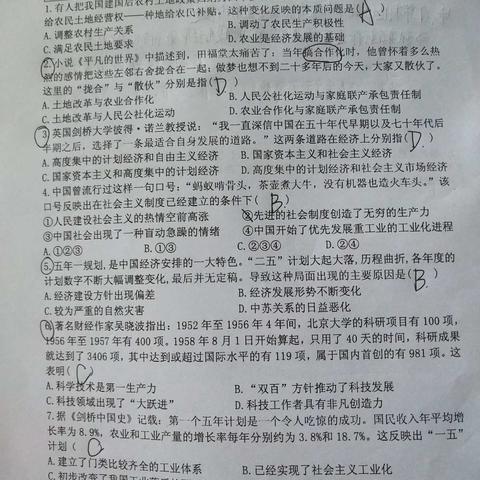 给农民土地经营权——种地给农民补贴。这种变化反映的本质问题是( A )
A.调整农村生产关系 B.调动了农民生产积极性
C.满足农民土地要求 D.农业是经济发展的基础
2.小说《平凡的世界》中描述到，田福堂太痛苦了：当年搞合作化时，他曾怀着多么热
烈的感情把这些左邻右舍拢合在一起；做梦也想不到二十多年后的今天，大家又散伙了。
这里的“拢合”与“散伙”分别是指( D )
A.土地改革与农业合作化 B.人民公社化运动与家庭联产承包责任制
C.土地改革与人民公社化运动 D.农业合作化与家庭联产承包责任制
3.英国剑桥大学彼得·诺兰教授说：“我一直深信中国在五十年代早期以及七十年代后
半期之后，选择了一条最适合自身发展的道路。”这两条道路在经济上分别指( D )
A.高度集中的计划经济和自由主义经济 B.国家资本主义和社会主义经济
C.国家资本主义和高度集中的计划经济 D.高度集中的计划经济和社会主义市场经济
4.中国曾流行过这样一句口号：“蚂蚁啃骨头，茶壶煮大牛，没有机器也造火车头。”该
口号反映出在社会主义制度已经建立的条件下( B )
①人民建设社会主义的热情空前高涨 ②先进的社会制度创造了无穷的生产力
③中国社会出现了一种盲动急躁的情绪 ④中国开始了优先发展重工业的工业化进程
A.①②③ B.①③ C.②③④ D.②④
5.五年一规划，是中国经济安排的一大特色。“二五”计划大起大落，历程曲折，各年度的
计划数字不断大幅调整变化，最后并无定稿。导致这种局面出现的主要原因是( B )
A.经济建设方针出现偏差 B.经济发展形势不断变化
C.较为严重的自然灾害 D.中苏关系的日益恶化
6.著名财经作家吴晓波指出：1952年至1956年4年间，北京大学的科研项目有100项，
1956年至1957年有400项。1958年8月1日开始算起，只用了40天的时间，科研成果
就达到了3406项，其中达到或超过国际水平的有119项，属于国内首创的有981项。这
表明( C )
A.科学技术是第一生产力 B.“双百”方针推动了科技发展
C.科技领域出现了“大跃进” D.科技工作者具有非凡创造力
7.据《剑桥中国史》记载：第一个五年计划是一个令人吃惊的成功。国民收入年平均增
长率为8.9%，农业和工业产量的增长率每年分别约为3.8%和18.7%。这反映出“一五”
计划(
A.建立了门类比较齐全的工业体系 B.已经实现了社会主义工业化